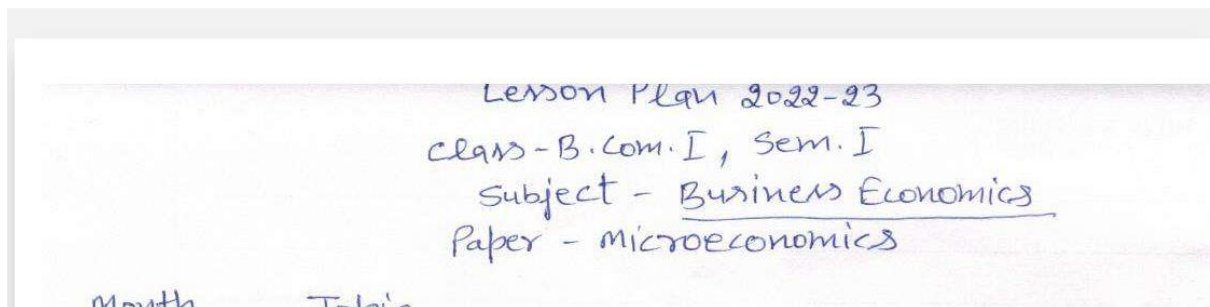 Lesson Plan 2022-23
Class-B.Com.I, Sem. I
Subject - Business Economics
Paper - Microeconomics
Month Topic